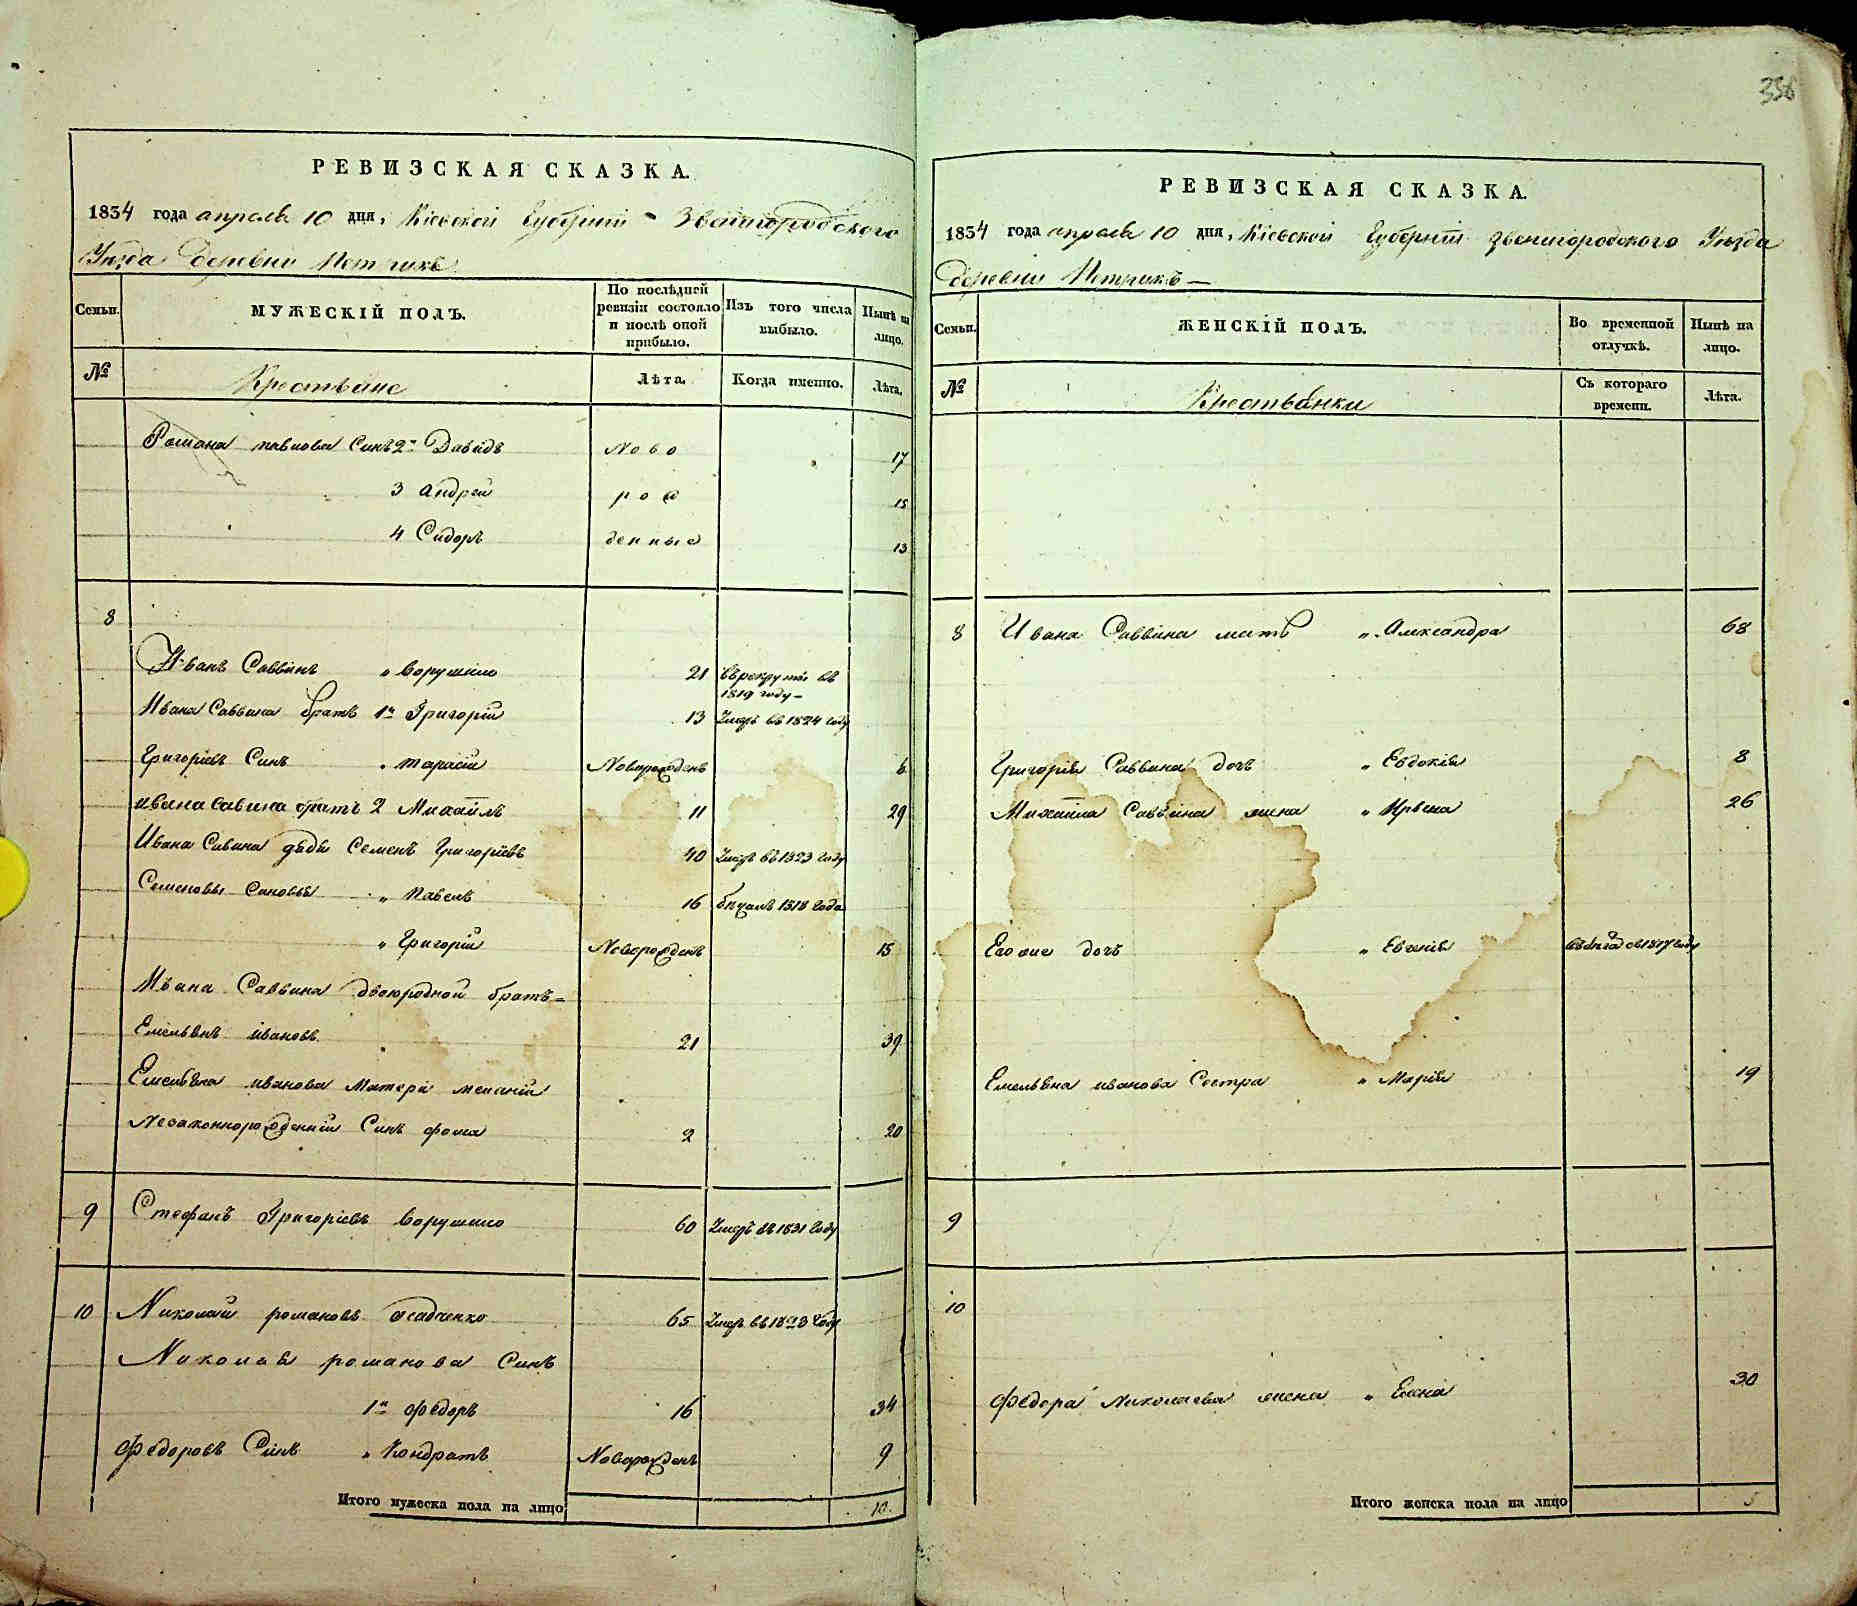 336
РЕВИЗСКАЯ СКАЗКА.
1834 года апреля 10 дня, Кіевской Губерніи Звенигородского
Уезда деревни Петрикъ
Семьи.
МУЖЕСКІЙ ПОЛЪ.
По послѣдней ревизіи состояло и послѣ оной прибыло.
Изъ того числа выбыло.
Нынѣ на лицо.
№
Крестьяне
Лѣта.
Когда именно.
Лѣта.
Романа павлова Синъ 2й Давидъ Ново 17
3 Андрей рож 15
4 Сидоръ денные 13
8
Иванъ Саввинъ „ Ворушило 21 въ рекруты въ
1819 году
Ивана Саввина братъ 1й Григорій 13 Умеръ въ 1824 году
Григоріевъ Синъ „ Тарасій Новорожденъ 6
Ивана Савина братъ 2 Михаилъ 11 29
Ивана Савина дядя Семенъ Григоріевъ 40 Умеръ въ 1823 году
Семеновы Синовья „ Павелъ 16 1818 года
„ Григорій Новорожденъ 15
Ивана Саввина двоюродной братъ
Емельянъ Ивановъ 21 39
Емельяна иванова матери меланіи
Незаконнорожденній Синъ фома 2 20
9 Стефанъ Григоріевъ Ворушило 60 Умеръ въ 1831 году
10 Николай романовъ Осадченко 65 Умеръ въ 1828 году
Николая романова Синъ
1й федоръ 16 34
федоровъ Синъ „ Кондратъ Новорожденъ 9
Итого мужеска пола на лицо 10
РЕВИЗСКАЯ СКАЗКА.
1834 года апреля 10 дня, Кіевской Губерніи Звенигородского Уезда
деревни Петрикъ
Семьи.
ЖЕНСКІЙ ПОЛЪ.
Во временной отлучкѣ.
Нынѣ на лицо.
№
Крестьянки
Съ котораго времени.
Лѣта.
8 Ивана Саввина мать „ Александра 68
Григорія Саввина дочь „ Евдокія 8
Михаила Саввина жена „ Ирина 26
Его же дочь „ 1817 году
Емельяна иванова Сестра „ Марія 19
9
10
федора Николаева жена „ Елена 30
Итого женска пола на лицо 5